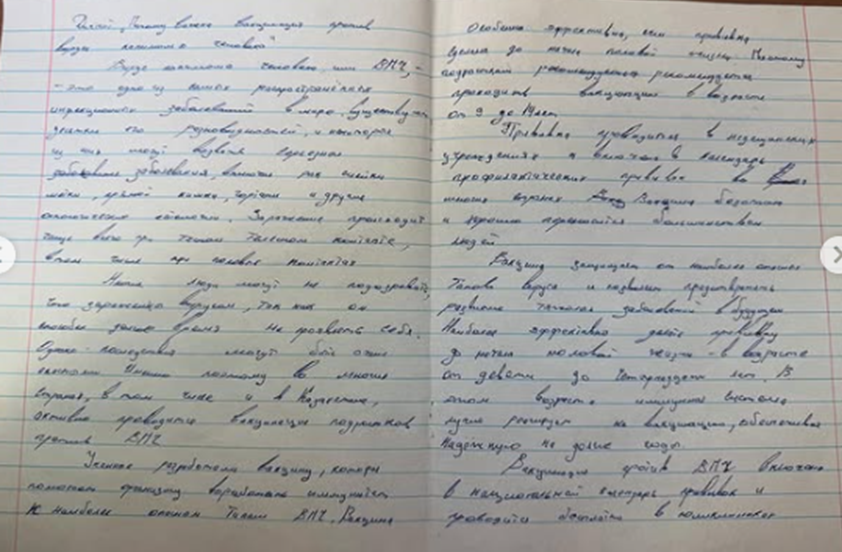 вируса папилломы человека"
Вирус папилломы человека, или ВПЧ, -
- это одно из самых распространённых
инфекционных заболеваний в мире. Существует
десятки его разновидностей, и некоторые
из них могут вызвать серьезные
заболевания, включая рак шейки
матки, прямой кишки, гортани и другие
Заражение происходит
чаще всего при тесном телесном контакте,
в том числе при половых контактах
люди могут не подозревать,
что заражены вирусом, так как он
способен долгое время не проявлять себя.
Однако последствия могут быть очень
Именно поэтому во многих
странах, в том числе и в Казахстане,
активно проводится вакцинация подростков
против ВПЧ
Ученые разработали вакцину, которая
помогает организму выработать иммунитет
к наиболее опасным типам ВПЧ. Вакцина
Особенно эффективна, если прививка
сделана до начала половой жизни. Поэтому
подросткам рекомендуется рекомендуется
проводить вакцинацию в возрасте
от 9 до 14 лет
Прививка проводится в медицинских
учреждениях и включена в календарь
профилактических прививок во
многих странах Вакцина безопасна
и хорошо переносится большинством
людей
Вакцина защищает от наиболее опасных
типов вируса и позволяет предотвратить
развитие тяжелых заболеваний в будущем
Наиболее эффективно делать прививку
до начала половой жизни - в возрасте
от девяти до четырнадцати лет. В
этом возрасте иммунная система
лучше реагирует на вакцинацию, обеспечивая
на долгие годы.
Вакцинация против ВПЧ включена
в национальный календарь прививок и
проводится бесплатно в поликлиниках